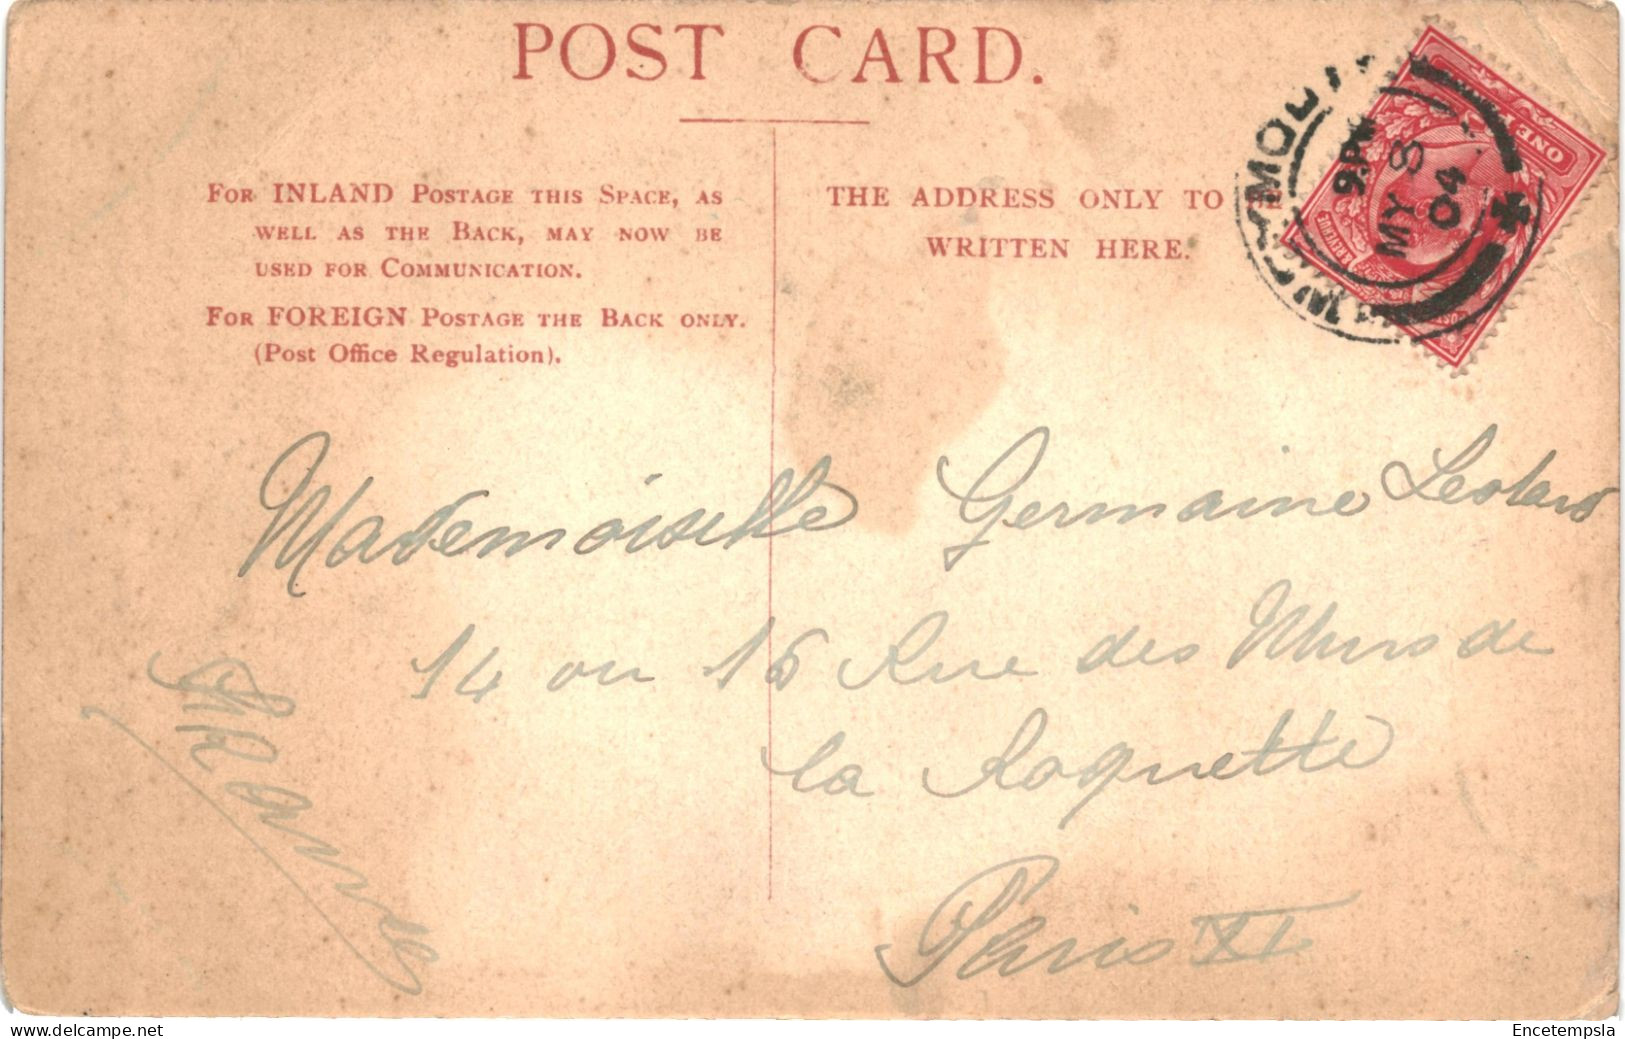 POST CARD.
FOR INLAND POSTAGE THIS SPACE, AS
WELL AS THE BACK, MAY NOW BE
USED FOR COMMUNICATION.
FOR FOREIGN POSTAGE THE BACK ONLY.
(Post Office Regulation).
THE ADDRESS ONLY TO
WRITTEN HERE.
9 PM
MY 8
04
ONE
& REVENUE
Mademoiselle Germaine
14 ou 16 Rue des Murs de
la Roquette
Paris XI
France
www.delcampe.net
Encetempsla